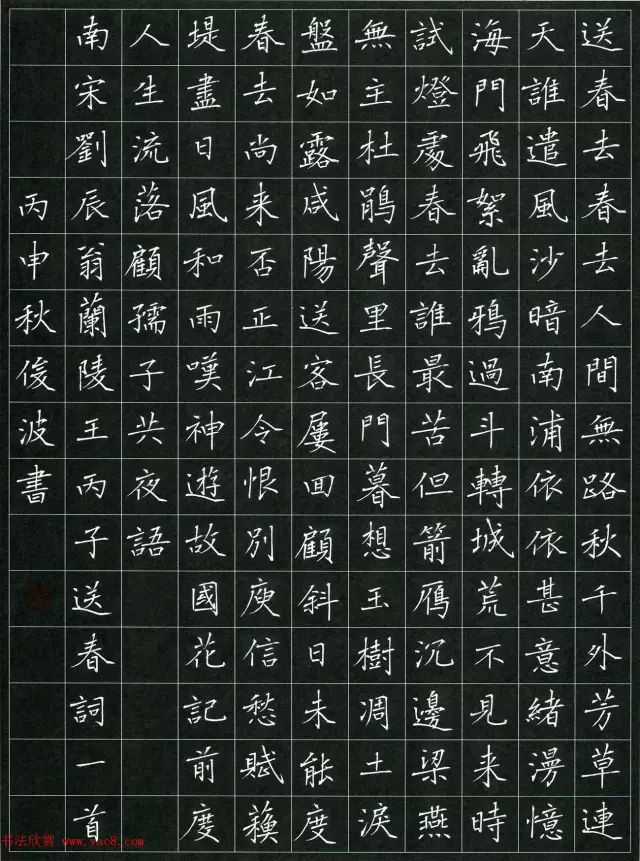 送春去春去人間無路秋千外芳草連
天誰遣風沙暗南浦依依甚意緒漫憶
海門飛絮亂鴉過斗轉城荒不見来時
試燈處春去誰最苦但箭雁沉邊梁燕
無主杜鵑聲里長門暮想玉樹凋土淚
盤如露咸陽送客屢回顧斜日未能度
春去尚来否正江令恨別庾信愁賦蘇
堤盡日風和雨嘆神遊故國花記前度
人生流落顧孺子共夜語
南宋劉辰翁蘭陵王丙子送春詞一首
丙申秋俊波書
书法欣赏 www.yac8.com